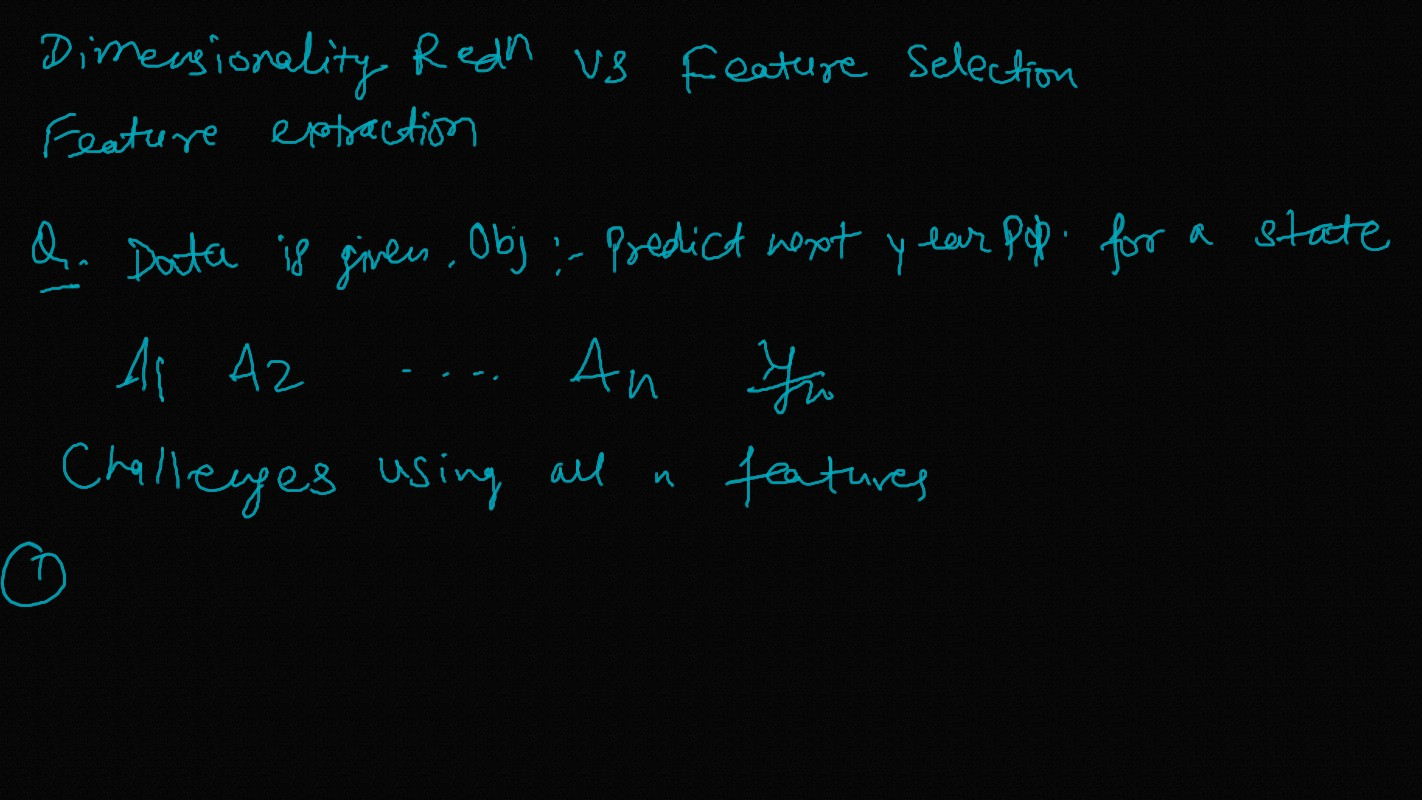 Dimensionality Redn vs Feature Selection
Feature extraction
Q. Data is given. Obj :- Predict next year Pop. for a state
A1 A2 ..... An y
Challenges using all n features
1